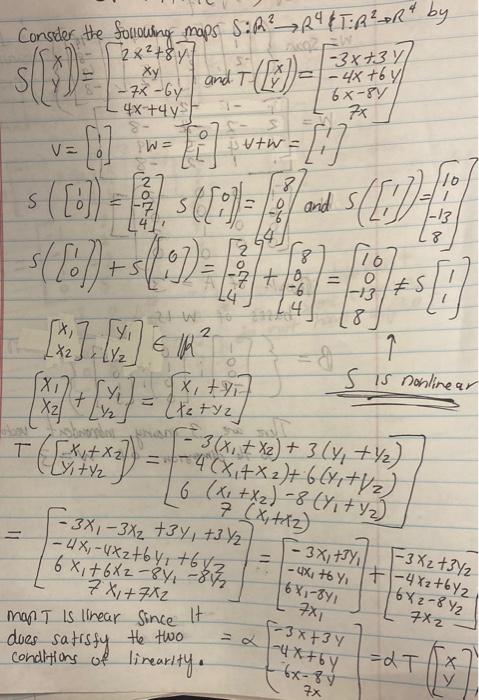 Consider the following maps S:R² → R⁴ & T:R² → R⁴ by
S([x y]) = [2x²+8y xy -7x-6y 4x+4y²] and T([x y]) = [-3x+3y -4x+6y 6x-8y 7x]
v = [1 0] w = [0 1] v+w = [1 1]
S([1 0]) = [2 0 -7 4], S([0 1]) = [8 0 -6 4] and S([1 1]) = [10 1 -13 8]
S([1 0]) + S([0 1]) = [2 0 -7 4] + [8 0 -6 4] = [10 0 -13 8] ≠ S[1 1]
[x₁ x₂], [y₁ y₂] ∈ R²
↑
S is nonlinear
[x₁ x₂] + [y₁ y₂] = [x₁+y₁ x₂+y₂]
T([x₁+x₂ y₁+y₂]) = [-3(x₁+x₂) + 3(y₁+y₂) -4(x₁+x₂)+6(y₁+y₂) 6(x₁+x₂)-8(y₁+y₂) 7(x₁+x₂)]
= [-3x₁-3x₂+3y₁+3y₂ -4x₁-4x₂+6y₁+6y₂ 6x₁+6x₂-8y₁-8y₂ 7x₁+7x₂] = [-3x₁+3y₁ -4x₁+6y₁ 6x₁-8y₁ 7x₁] + [-3x₂+3y₂ -4x₂+6y₂ 6x₂-8y₂ 7x₂]
map T is linear since it
does satisfy the two
conditions of linearity.
= α [-3x+3y -4x+6y 6x-8y 7x] = αT([x y])